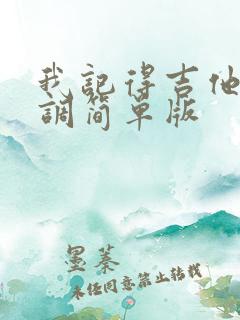 我記得吉他
調简单版
墨蓁
未经同意禁止转载